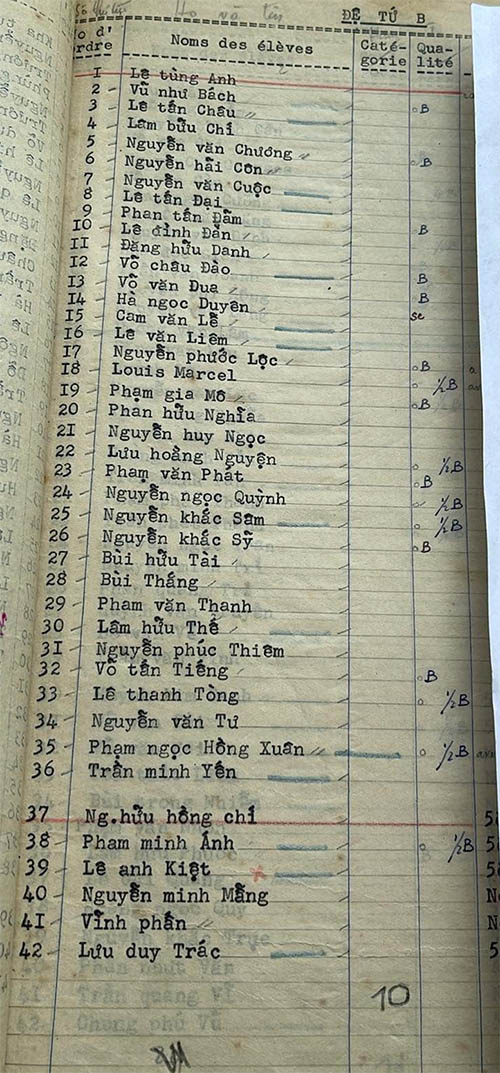 Số thứ tự Họ và tên ĐỆ TỨ B
No d'ordre Noms des élèves Caté-gorie Qua-lité
1 Lê tùng Anh
2 Vũ như Bách
3 Lê tấn Châu B
4 Lâm bửu Chi
5 Nguyễn văn Chương
6 Nguyễn hải Côn B
7 Nguyễn văn Cuộc
8 Lê tấn Đại
9 Phan tấn Đãm
10 Lê đình Đàn B
11 Đặng hữu Danh
12 Võ châu Đào
13 Võ văn Đua B
14 Hà ngọc Duyên B
15 Cam văn Lễ se
16 Lê văn Liêm
17 Nguyễn phước Lọc B
18 Louis Marcel 1/2 B
19 Phạm gia Mô B
20 Phan hữu Nghĩa
21 Nguyễn huy Ngọc
22 Lưu hoàng Nguyện 1/2 B
23 Phạm văn Phát B
24 Nguyễn ngọc Quỳnh 1/2 B
25 Nguyễn khắc Sâm 1/2 B
26 Nguyễn khắc Sỹ B
27 Bùi hữu Tài
28 Bùi Tháng
29 Phạm văn Thanh
30 Lâm hữu Thế
31 Nguyễn phúc Thiêm
32 Võ tấn Tiếng B
33 Lê thanh Tòng 1/2 B
34 Nguyễn văn Tư
35 Phạm ngọc Hồng Xuân 1/2 B
36 Trần minh Yến
37 Ng.hữu hồng chí
38 Phạm minh Ánh 1/2 B
39 Lê anh Kiệt
40 Nguyễn minh Mẫng
41 Vĩnh phấn
42 Lưu duy Trác
10